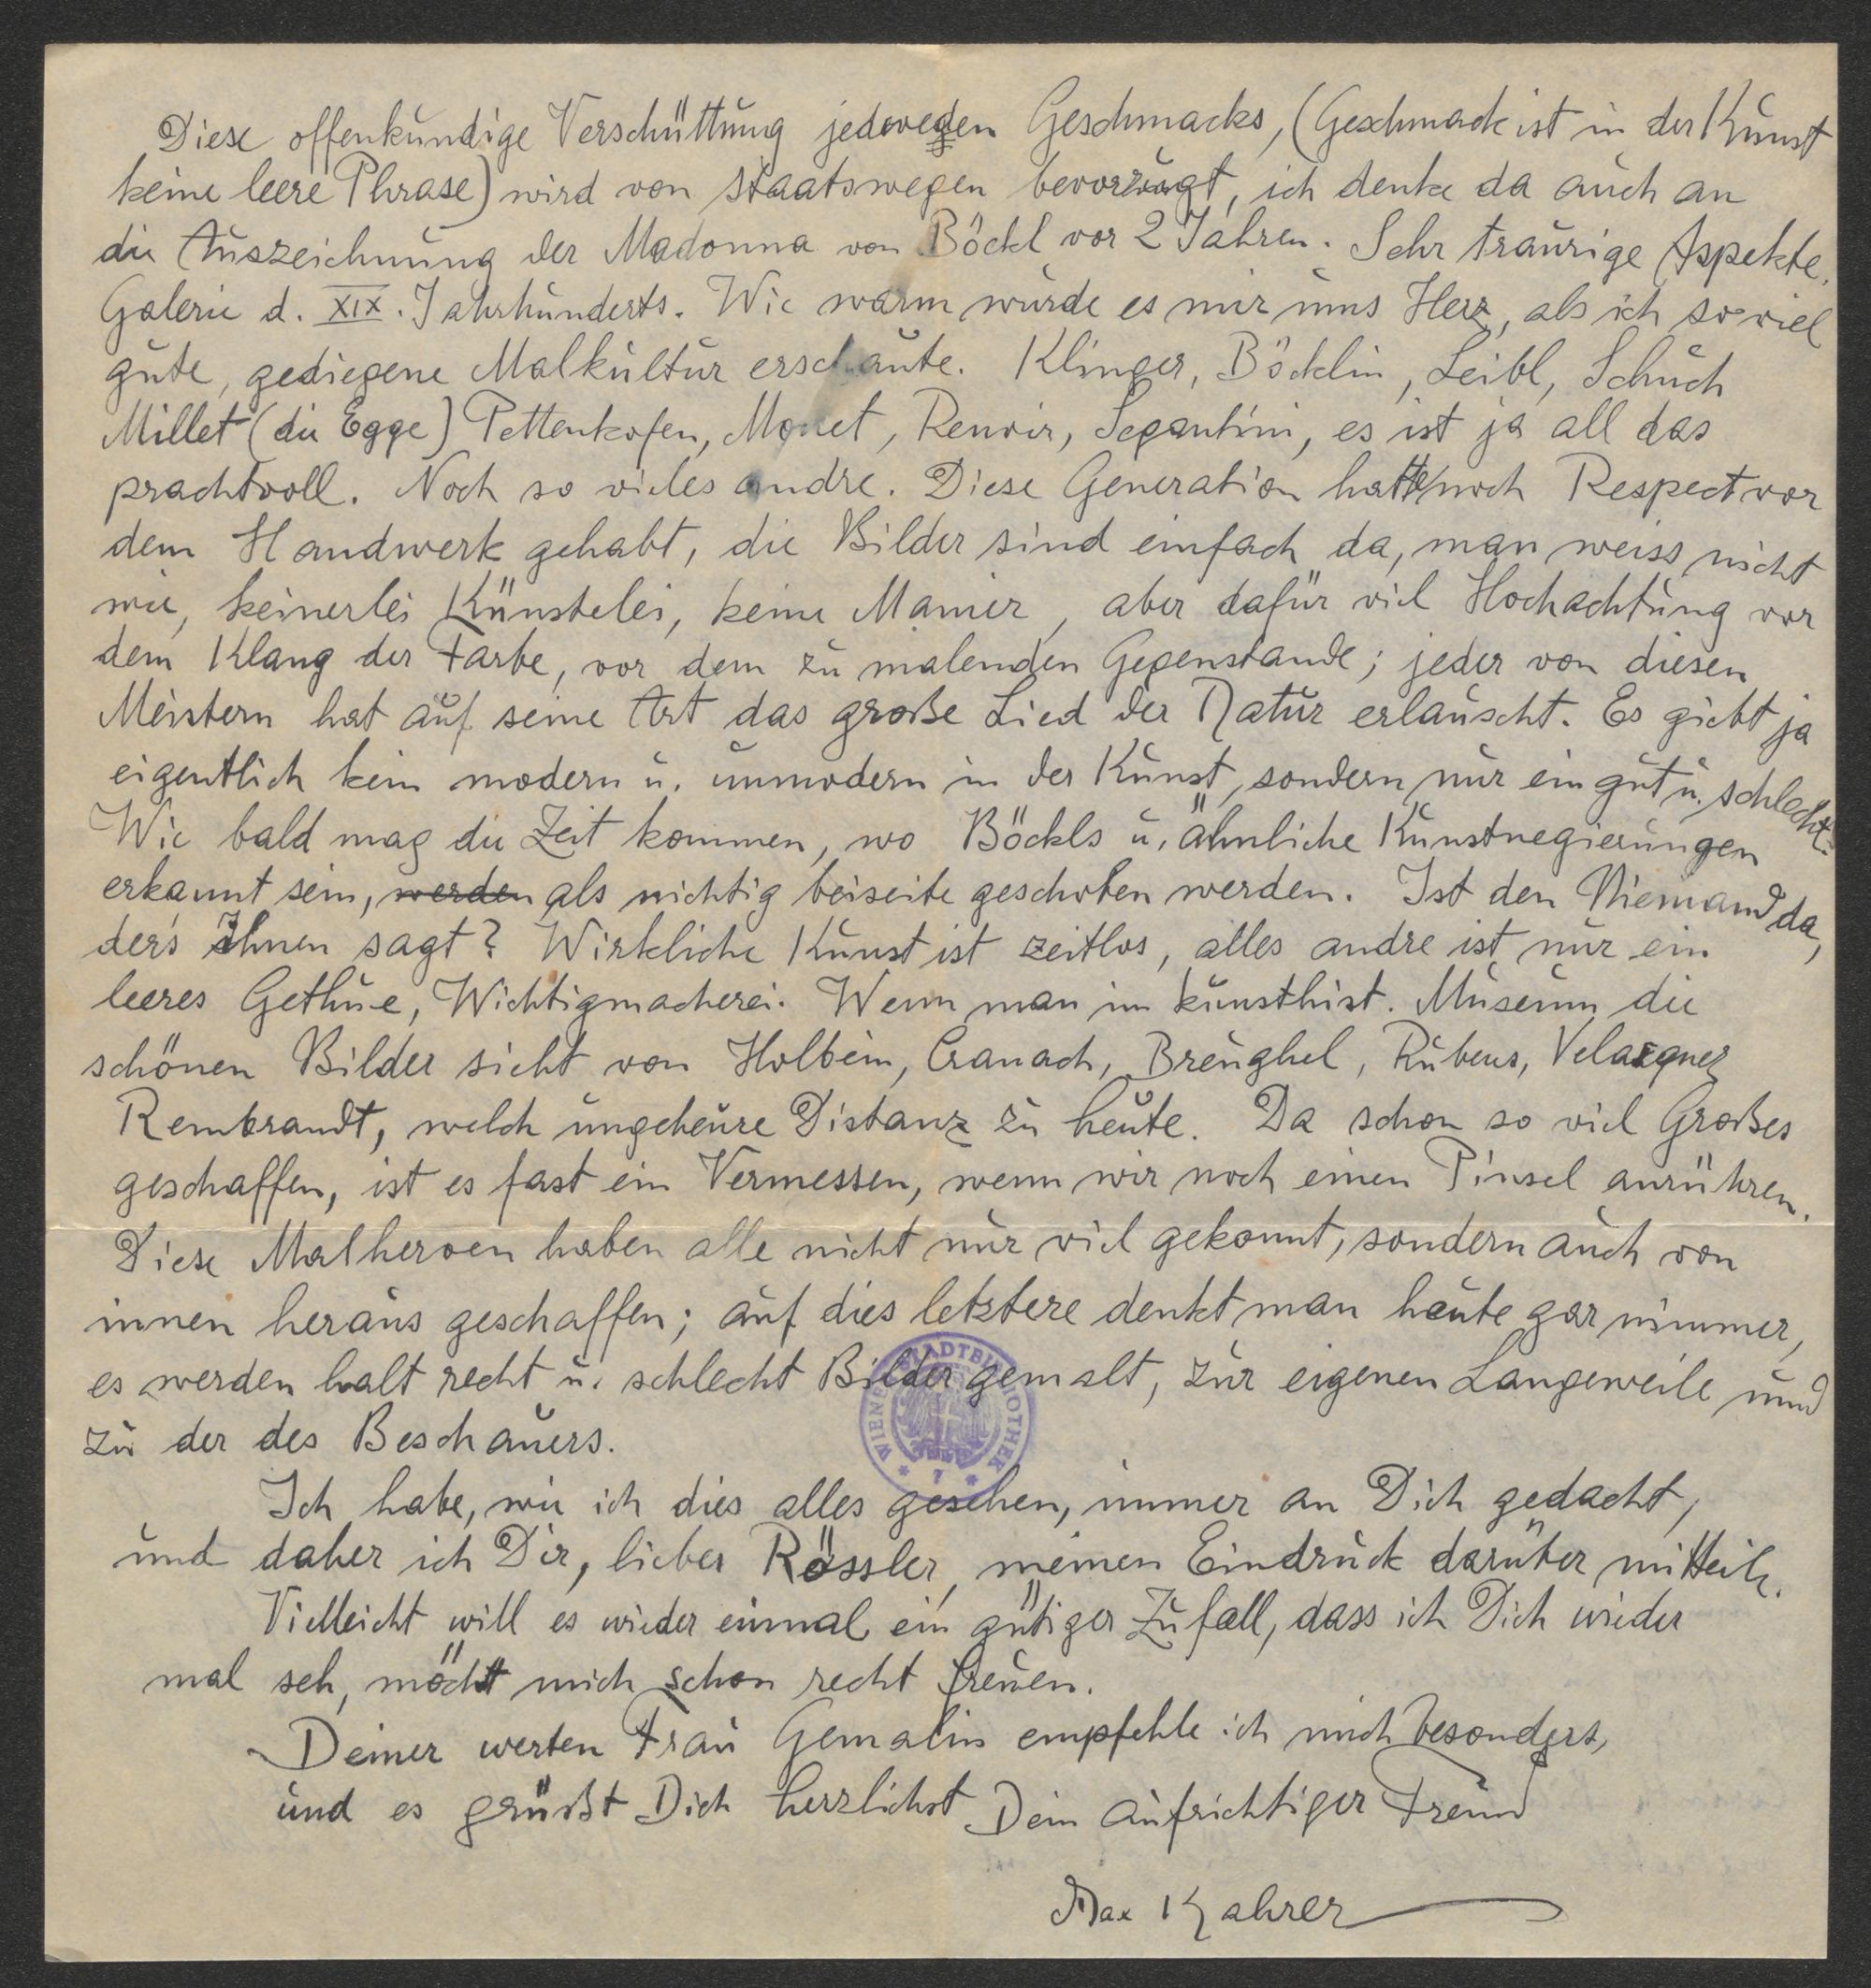 Diese offenkundige Verschüttung jedwegen Geschmacks, (Geschmack ist in der Kunst
keine leere Phrase) wird von staatswegen bevorzugt, ich denke da auch an
die Auszeichnung der Madonna von Böckl vor 2 Jahren. Sehr traurige Aspekte.
Galerie d. XIX. Jahrhunderts. Wie warm wurde es mir ums Herz, als ich so viel
gute, gediegene Malkultur erschaute. Klinger, Böcklin, Leibl, Schuch
Millet (die Egge) Pettenkofen, Monet, Renoir, Segantini, es ist ja all das
prachtvoll. Noch so vieles andre. Diese Generation hatte noch Respect vor
dem Handwerk gehabt, die Bilder sind einfach da, man weiss nicht
wie, keinerlei Künstelei, keine Manier, aber dafür viel Hochachtung vor
dem Klang der Farbe, vor dem zu malenden Gegenstande; jeder von diesen
Meistern hat auf seine Art das große Lied der Natur erlauscht. Es giebt ja
eigentlich kein modern u. unmodern in der Kunst, sondern nur ein gut u. schlecht.
Wie bald mag die Zeit kommen, wo Böckls u. ähnliche Kunstnegierungen
erkannt sein, werden als nichtig beiseite geschoben werden. Ist den Niemand da,
der's Ihnen sagt? Wirkliche Kunst ist zeitlos, alles andre ist nur ein
leeres Gethue, Wichtigmacherei. Wenn man im kunsthist. Museum die
schönen Bilder sieht von Holbein, Cranach, Breughel, Rubens, Velasquez
Rembrandt, welch ungeheure Distanz zu heute. Da schon so viel Großes
geschaffen, ist es fast ein Vermessen, wenn wir noch einen Pinsel anrühren.
Diese Malheroen haben alle nicht nur viel gekonnt, sondern auch von
innen heraus geschaffen; auf dies letztere denkt man heute gar nimmer,
es werden halt recht u. schlecht Bilder gemalt, zur eigenen Langeweile und
zu der des Beschauers.
WIENER STADTBIBLIOTHEK * 7 *
Ich habe, wie ich dies alles gesehen, immer an Dich gedacht,
und daher ich Dir, lieber Rössler, meinen Eindruck darüber mitteile.
Vielleicht will es wieder einmal ein gütiger Zufall, dass ich Dich wieder
mal seh, möcht mich schon recht freuen.
Deiner werten Frau Gemalin empfehle ich mich besonders,
und es grüßt Dich herzlichst Dein aufrichtiger Freund
Max Kahrer